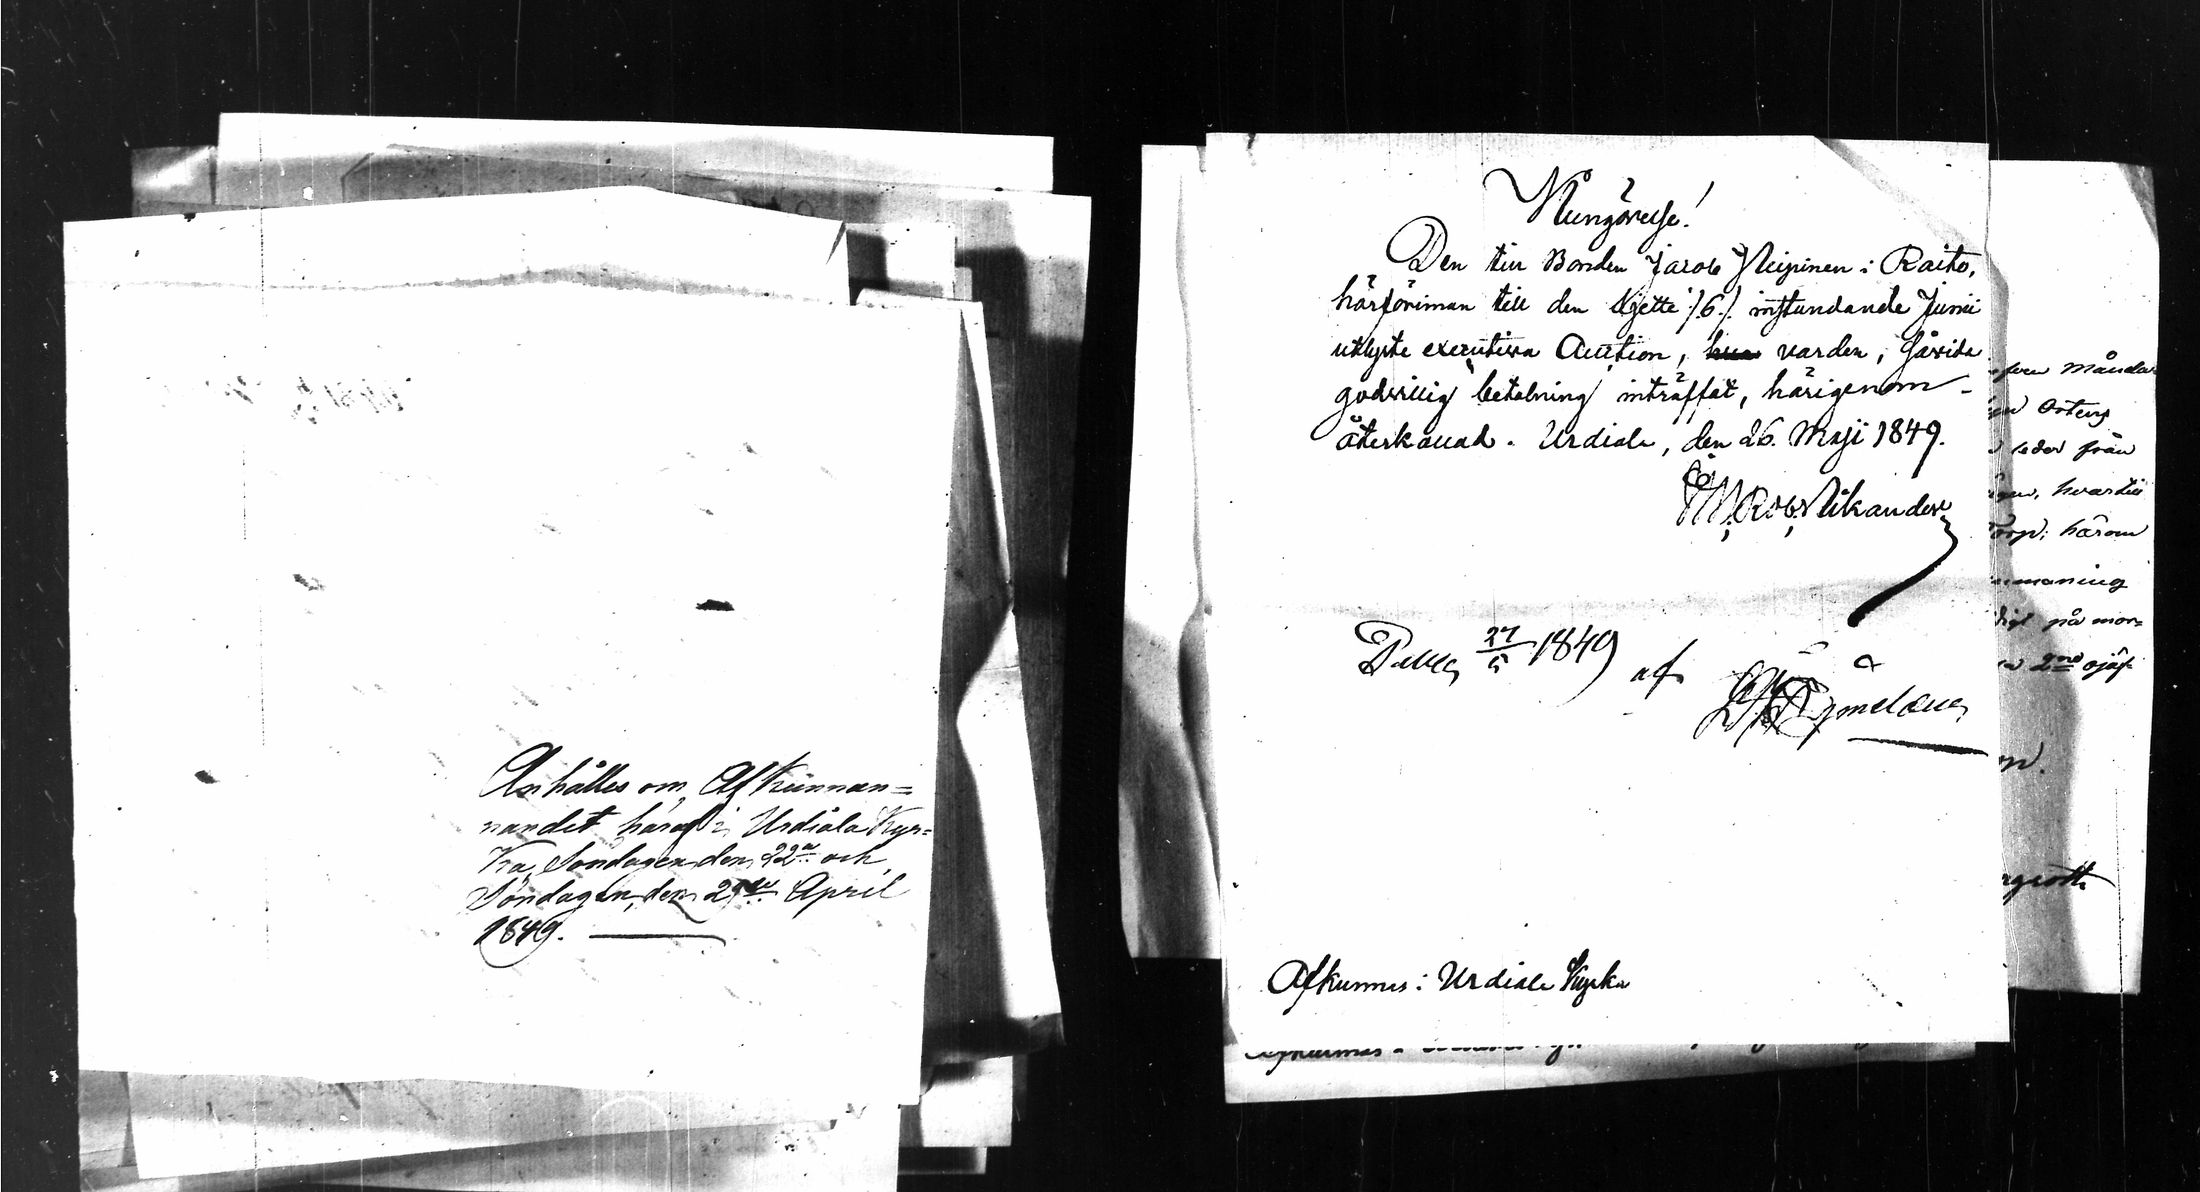 Anhålles om Afkunnan=
nandet häraf i Urdiala Kyr=
ka, Söndagen den 22a och
Söndagen den 29de April
1849.
Kungörelse!
Den till Bonden Jacob Neipinen i Raito,
härförinnan till den sjette /:6:/ instundande Junii
utlyste executiva Auction, varder, såvida
godvillig betalning inträffat, härigenom
återkallad. Urdiala, den 26. Maji 1849.
Rob. Nikander
27/5 1849 af
Afkunnes i Urdiala Kyrka
Månda
Ortens
leder från
hvartill
härom
maning
på mor=
2ne